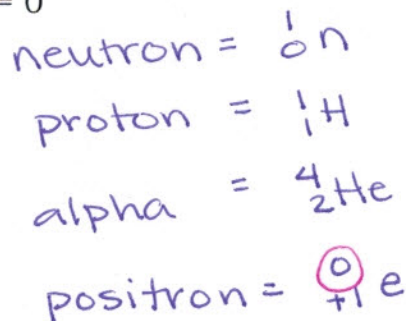 = 0
neutron = ¹₀n
proton = ¹₁H
alpha = ⁴₂He
positron = ⁰₊₁e